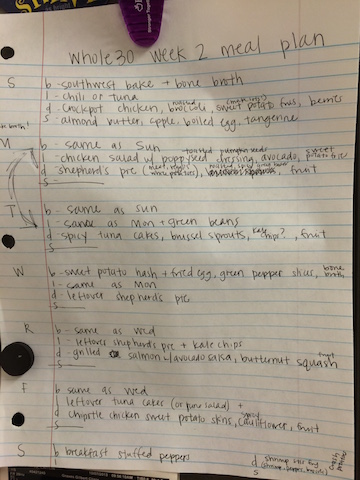 whole30 week 2 meal plan
S b - southwest bake + bone broth
l - chili or tuna
roasted
d - crockpot chicken, broccoli, sweet potato fries, berries
s - almond butter, apple, boiled egg, tangerine
broth!
M b - same as Sun
toasted pumpkin seeds
l - chicken salad w/ poppyseed dressing, avocado, sweet potato fries
d - shepherd's pie, fruit
s
T b - same as sun
l - same as mon + green beans
d - spicy tuna cakes, brussel sprouts, kale chips?, fruit
s
W b - sweet potato hash + fried egg, green pepper slices, bone broth
l - same as Mon
d - leftover shepherd's pie
s
R b - same as Wed
l - leftover shepherds pie + kale chips
d - grilled salmon w/ avocado salsa, butternut squash, fruit
s
F b same as Wed
l leftover tuna cakes (or tuna salad) +
d chipotle chicken sweet potato skins, spicy cauliflower, fruit
s
S b breakfast stuffed peppers
d shrimp stir fry
s